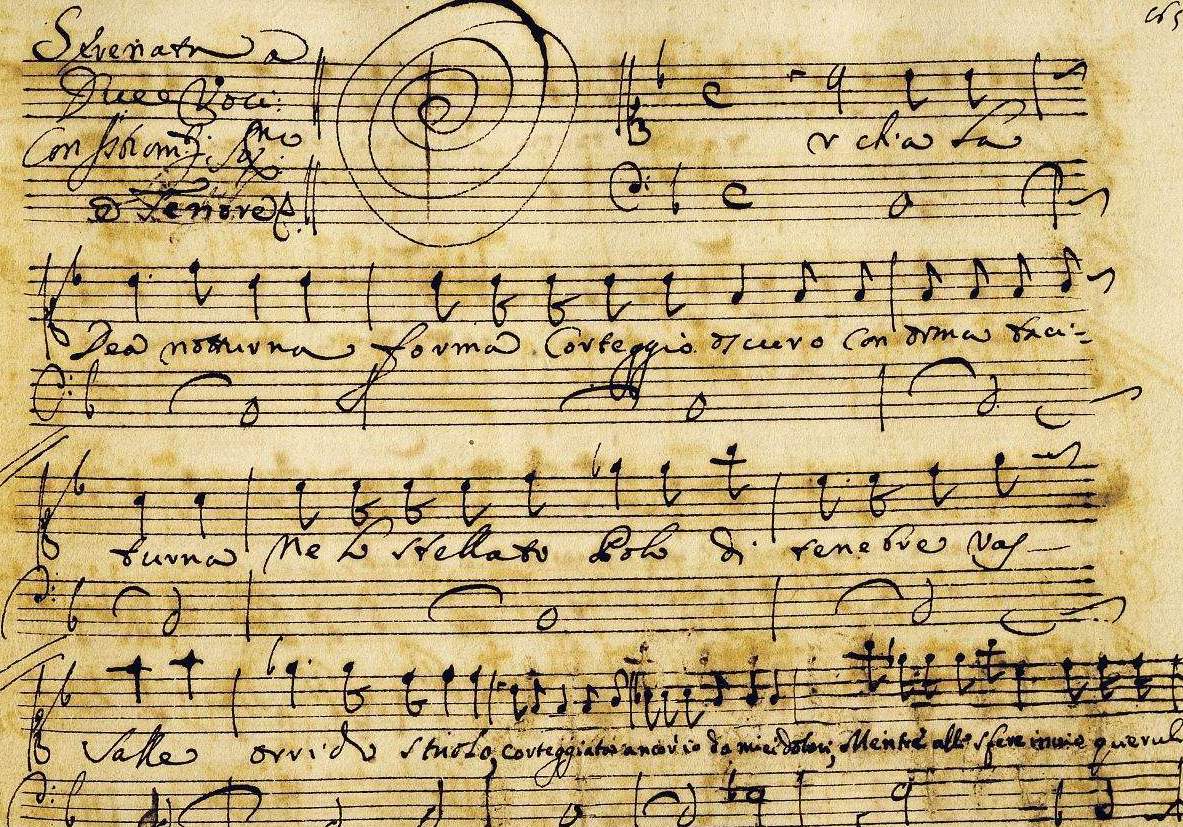 Serenata a
Due Voci:
Con
e Tenore
r chia La
Dea notturna forma Corteggio oscuro Con orma taci=
turna Ne lo stellato Polo di tenebre Vas
Salle orrido stuolo, corteggiato ancor io da miei dolori, Mentre alle sfere invio querul